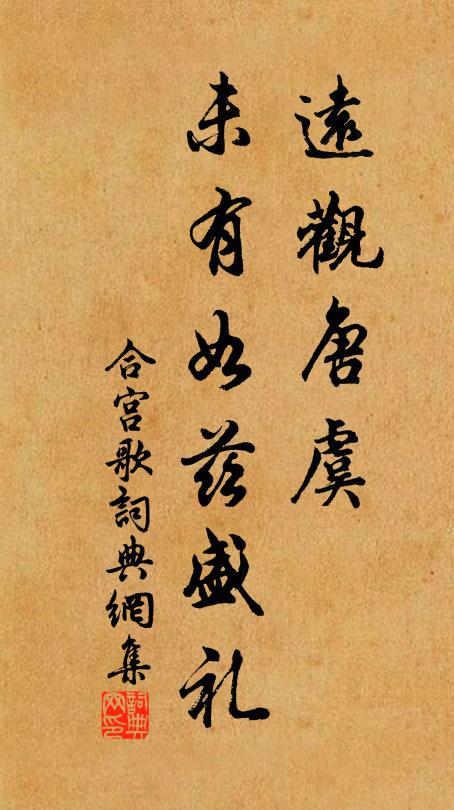 遠觀唐虞
未有如茲盛礼
合宮歌詞典網集
詞典網印